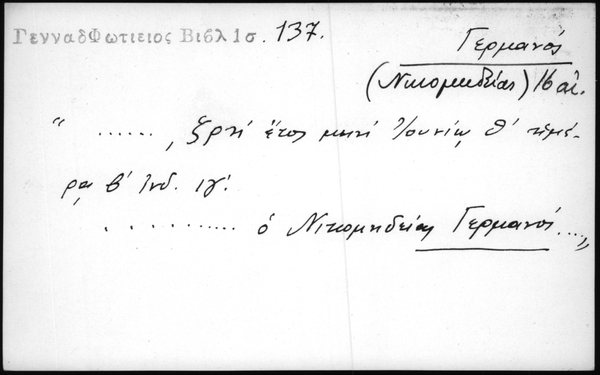 ΓενναδΦωτιειος Βιβλ 1σ. 137.
Γερμανός
(Νικομηδείας) 16 αἰ.
“ ......, ζρκή ἔτος μηνί Ἰουνίῳ θ' ἡμέ-
ρᾳ β' Ἰνδ. ιγ'.
.......... ὁ Νικομηδείας Γερμανός ....„